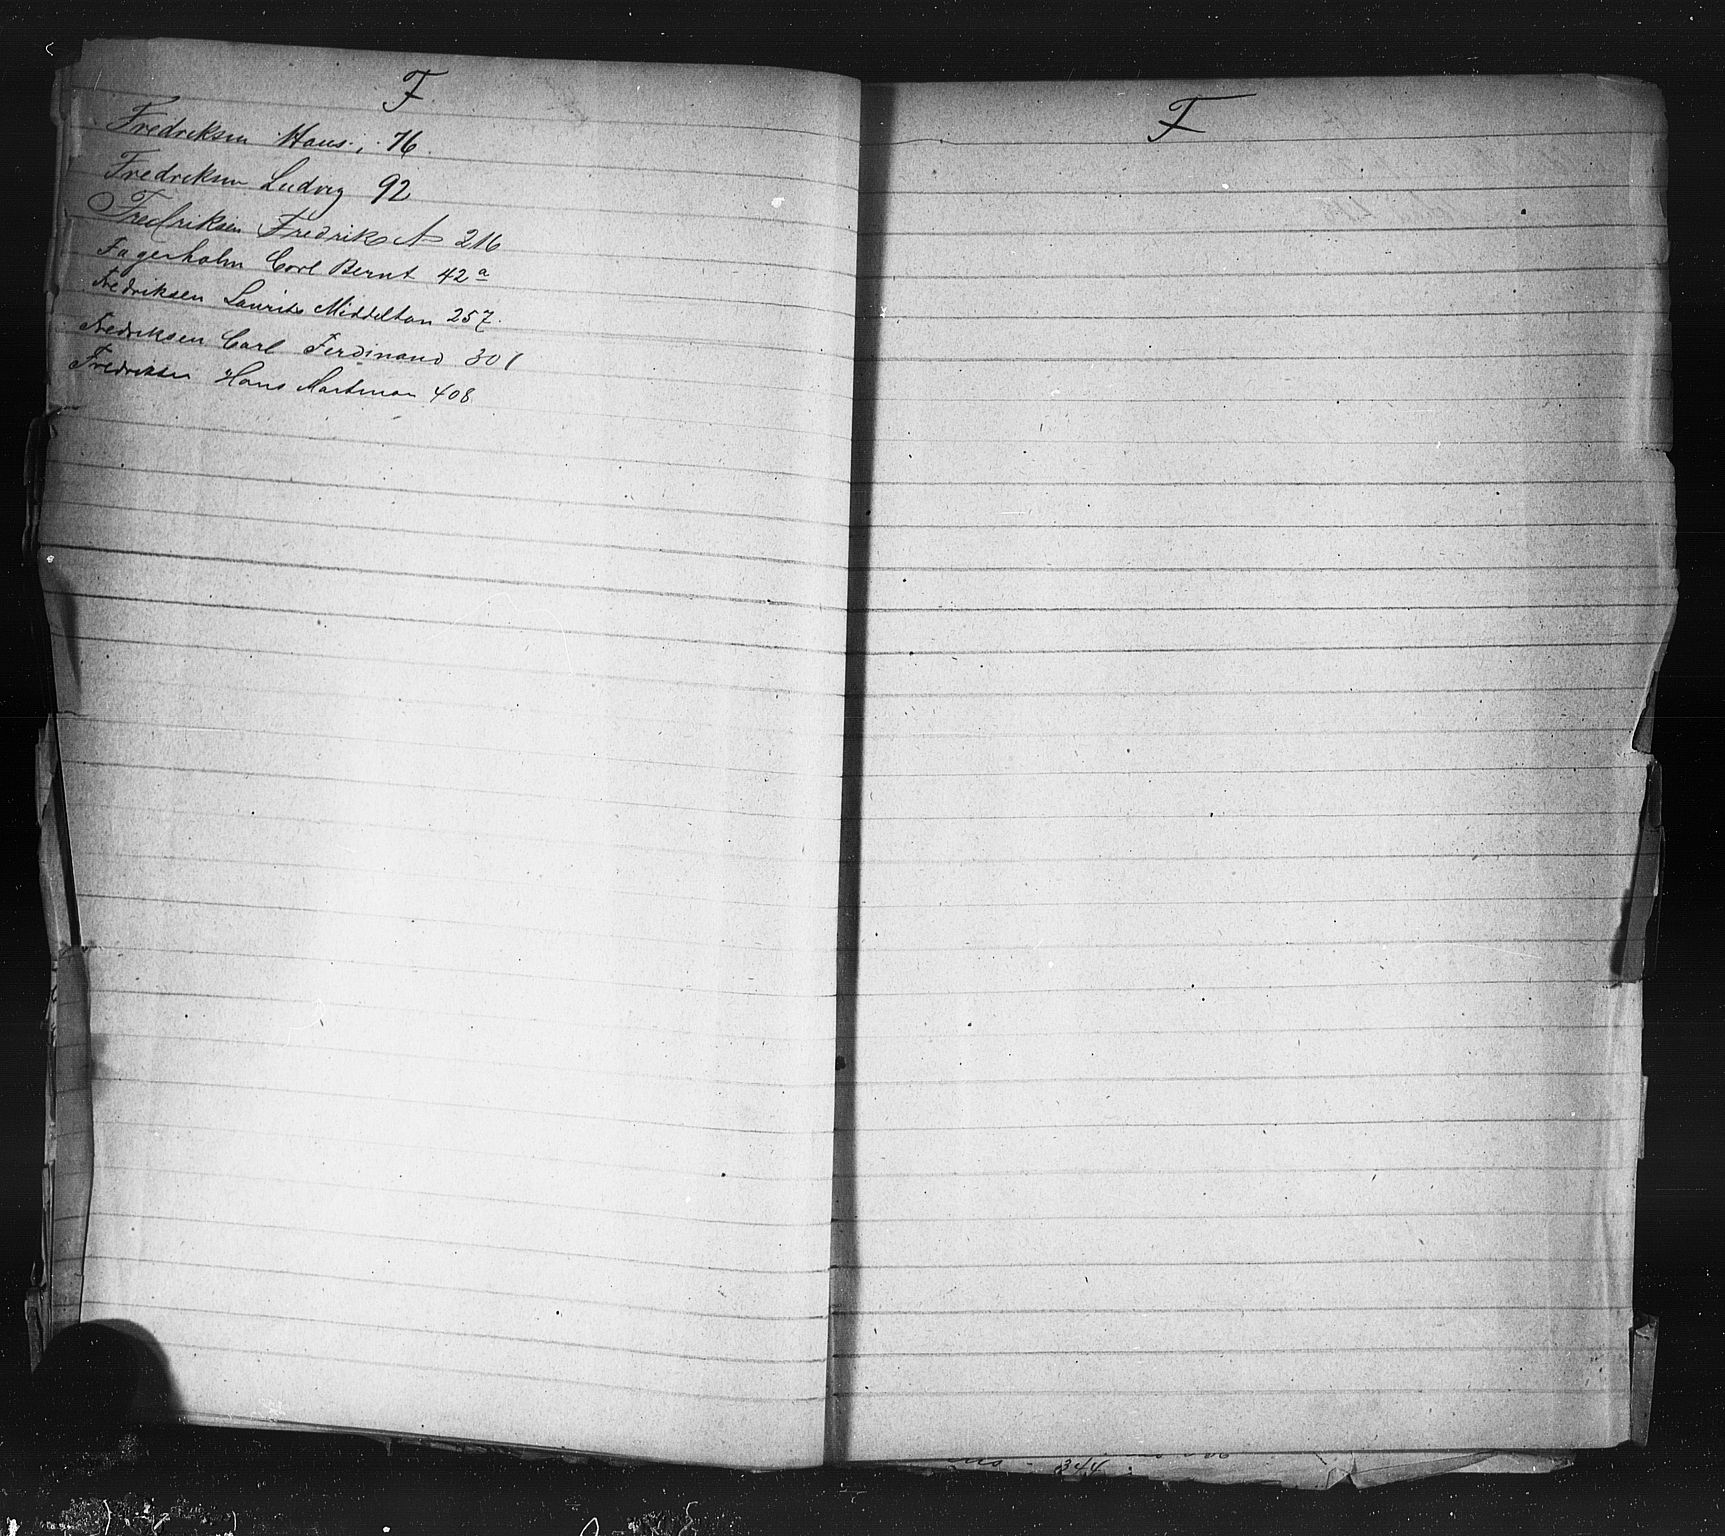 F.
Fredriksen Hans. 76.
Fredriksen Ludvig 92
Fredriksen Fredrik A 216
Fagerholm Carl Bernt 42 a
Fredriksen Laurits Middelton 257.
Fredriksen Carl Ferdinand 301
Fredriksen Hans Martman 408
F
344